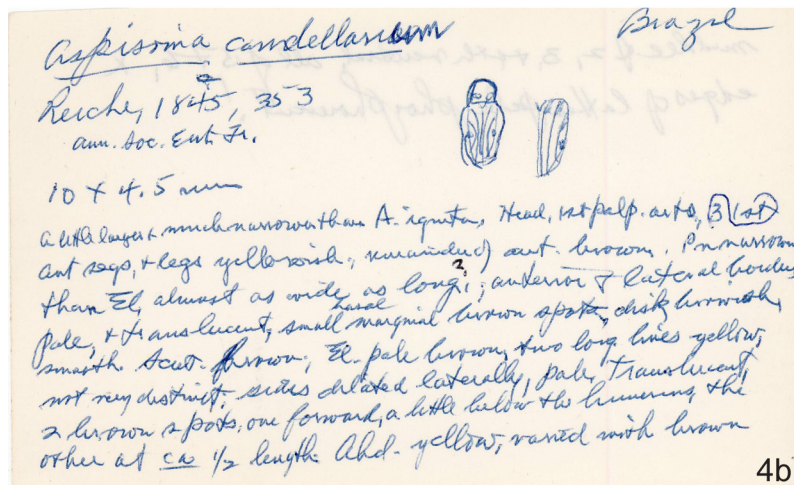 Aspisoma candellarium Brazil
Reiche, 1845, 353
ann. Soc. Ent. Fr.
10 x 4.5 mm
a little larger & much narrower than A. ignita, Head, 1st palp. arts, 3 1st
ant segs, & legs yellowish; remainder of ant. brown. Pn narrower
than El, almost as wide as long; ? anterior & lateral borders
pale, & translucent, small basal marginal brown spots, disk brownish,
smooth. Scut. brown; El. pale brown, two long lines yellow,
not very distinct; sides dilated laterally, pale, translucent,
2 brown spots, one forward, a little below the humerus, the
other at ca 1/2 length. Abd. yellow, varied with brown
4b